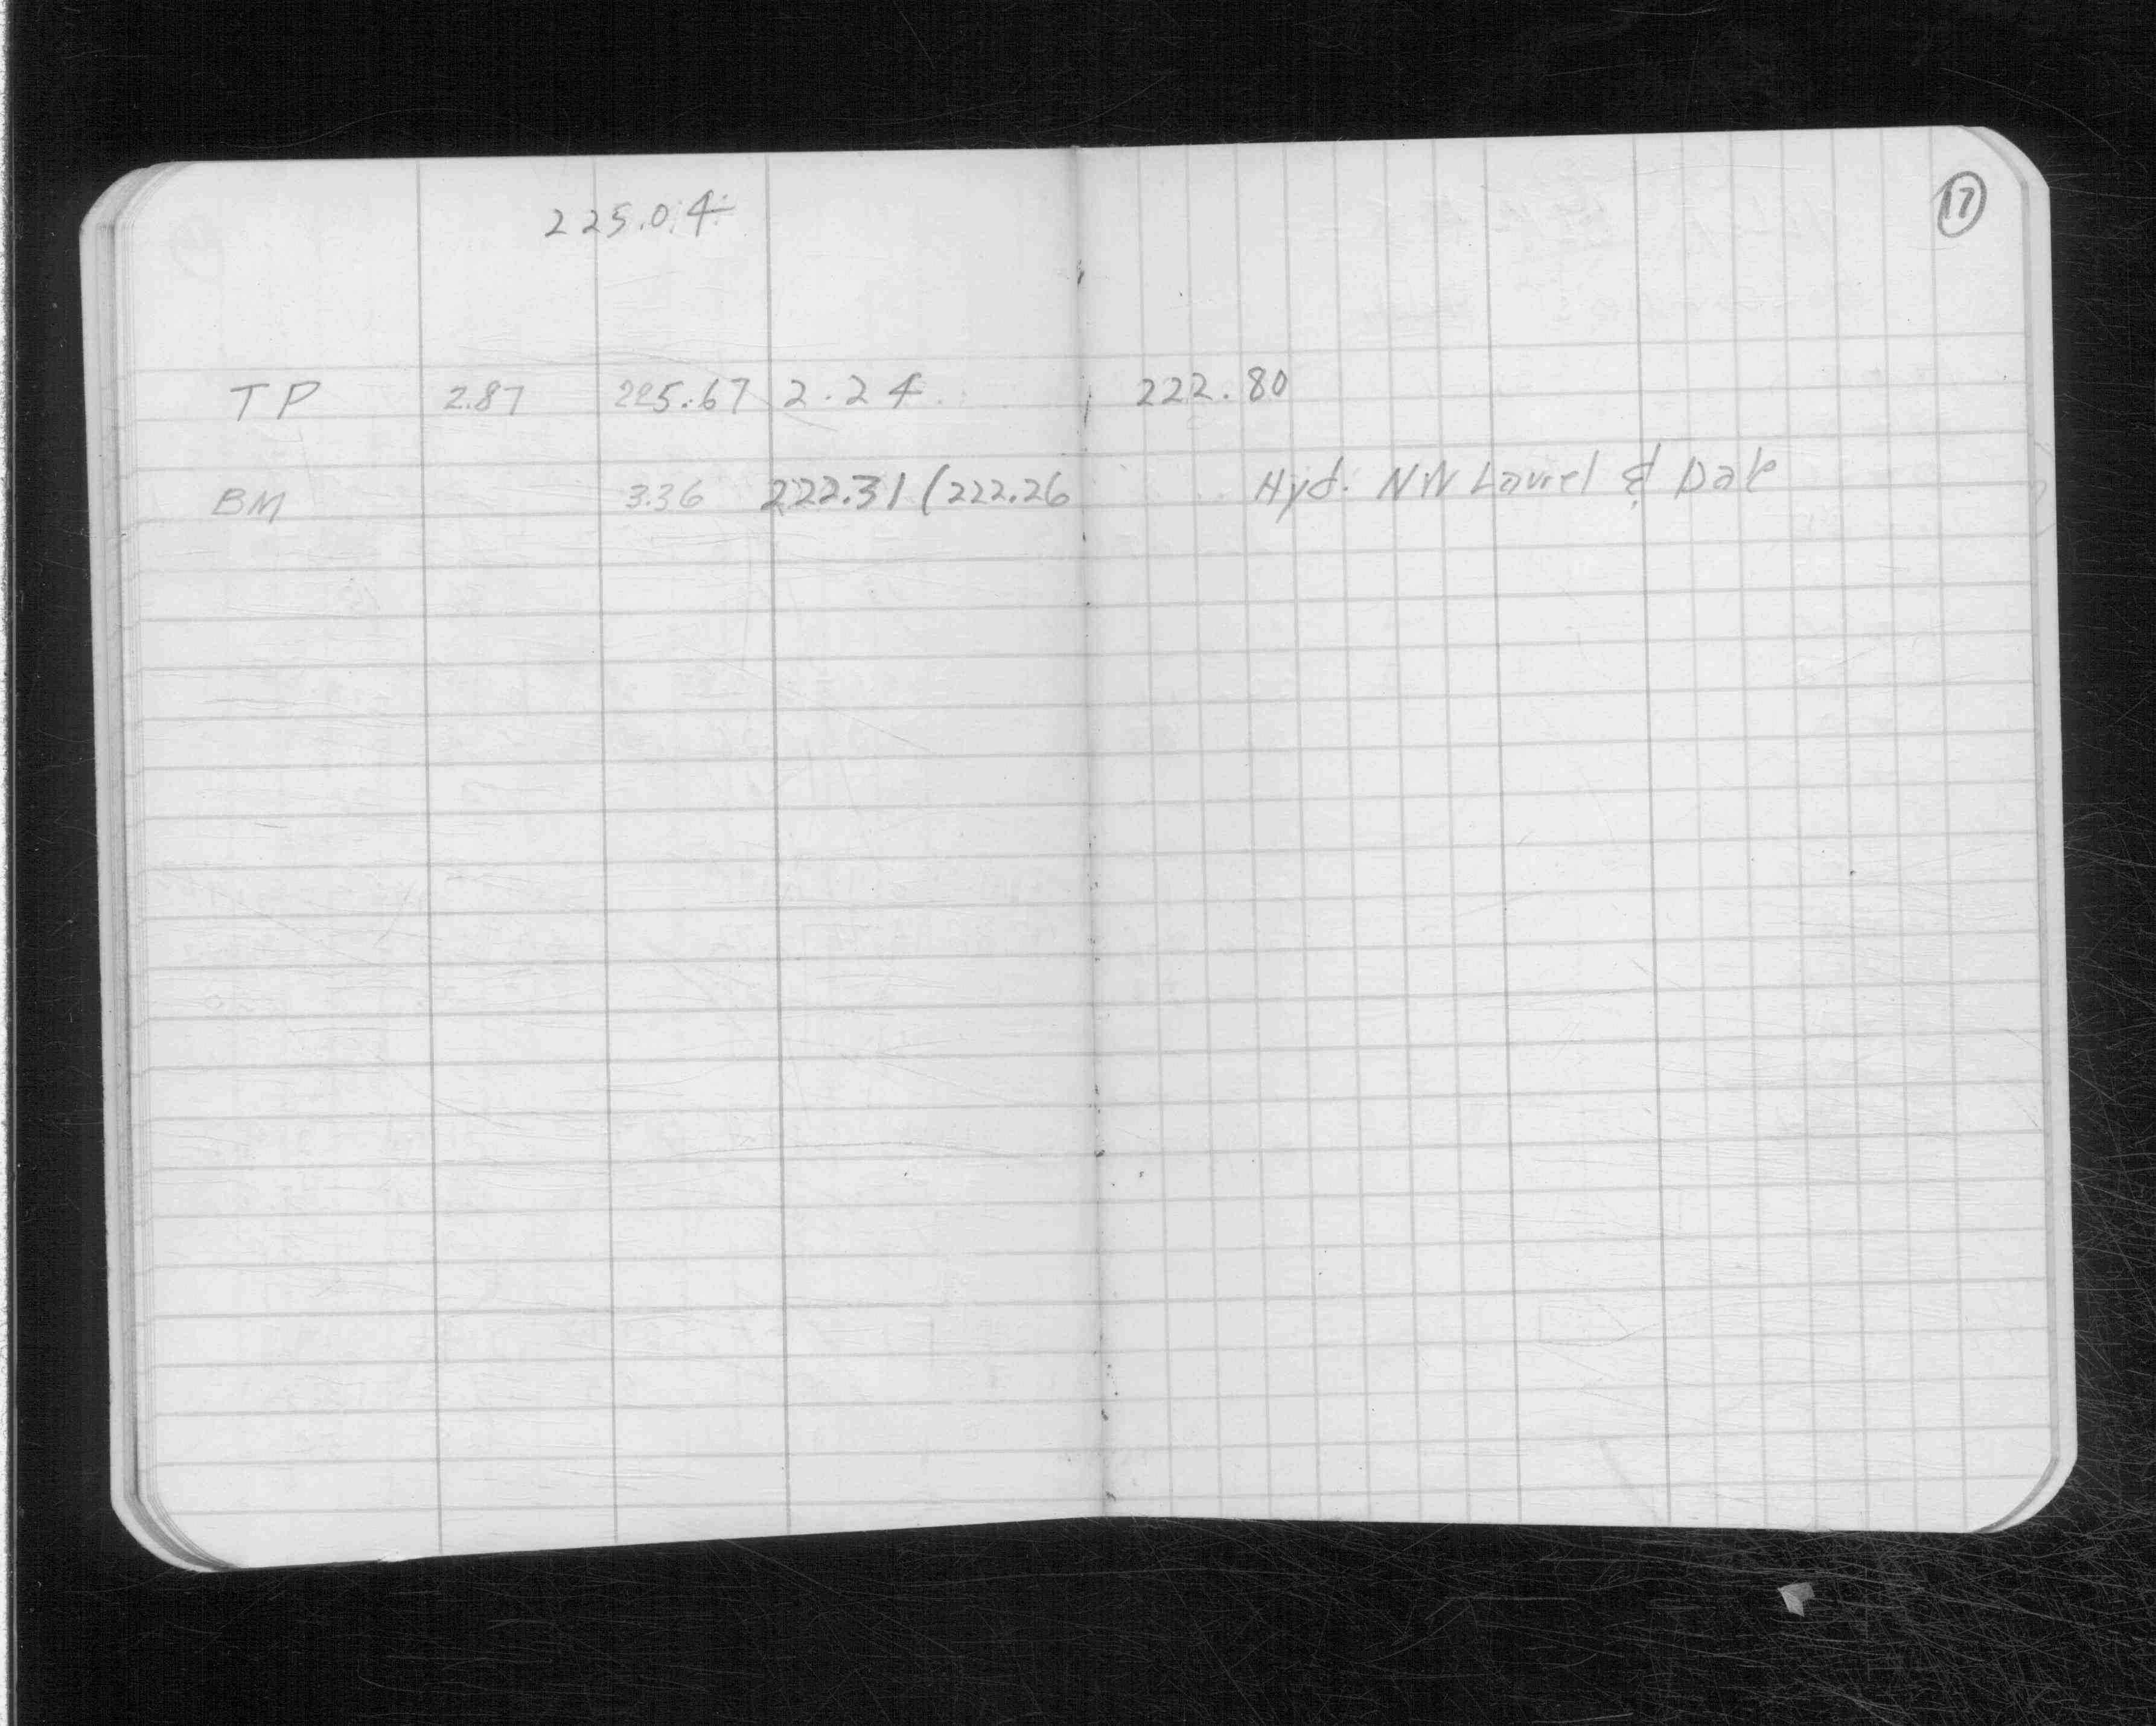 17
225.04
TP 2.87 225.67 2.24 222.80
BM 3.36 222.31 (222.26 Hyd. NW Laurel & Dale